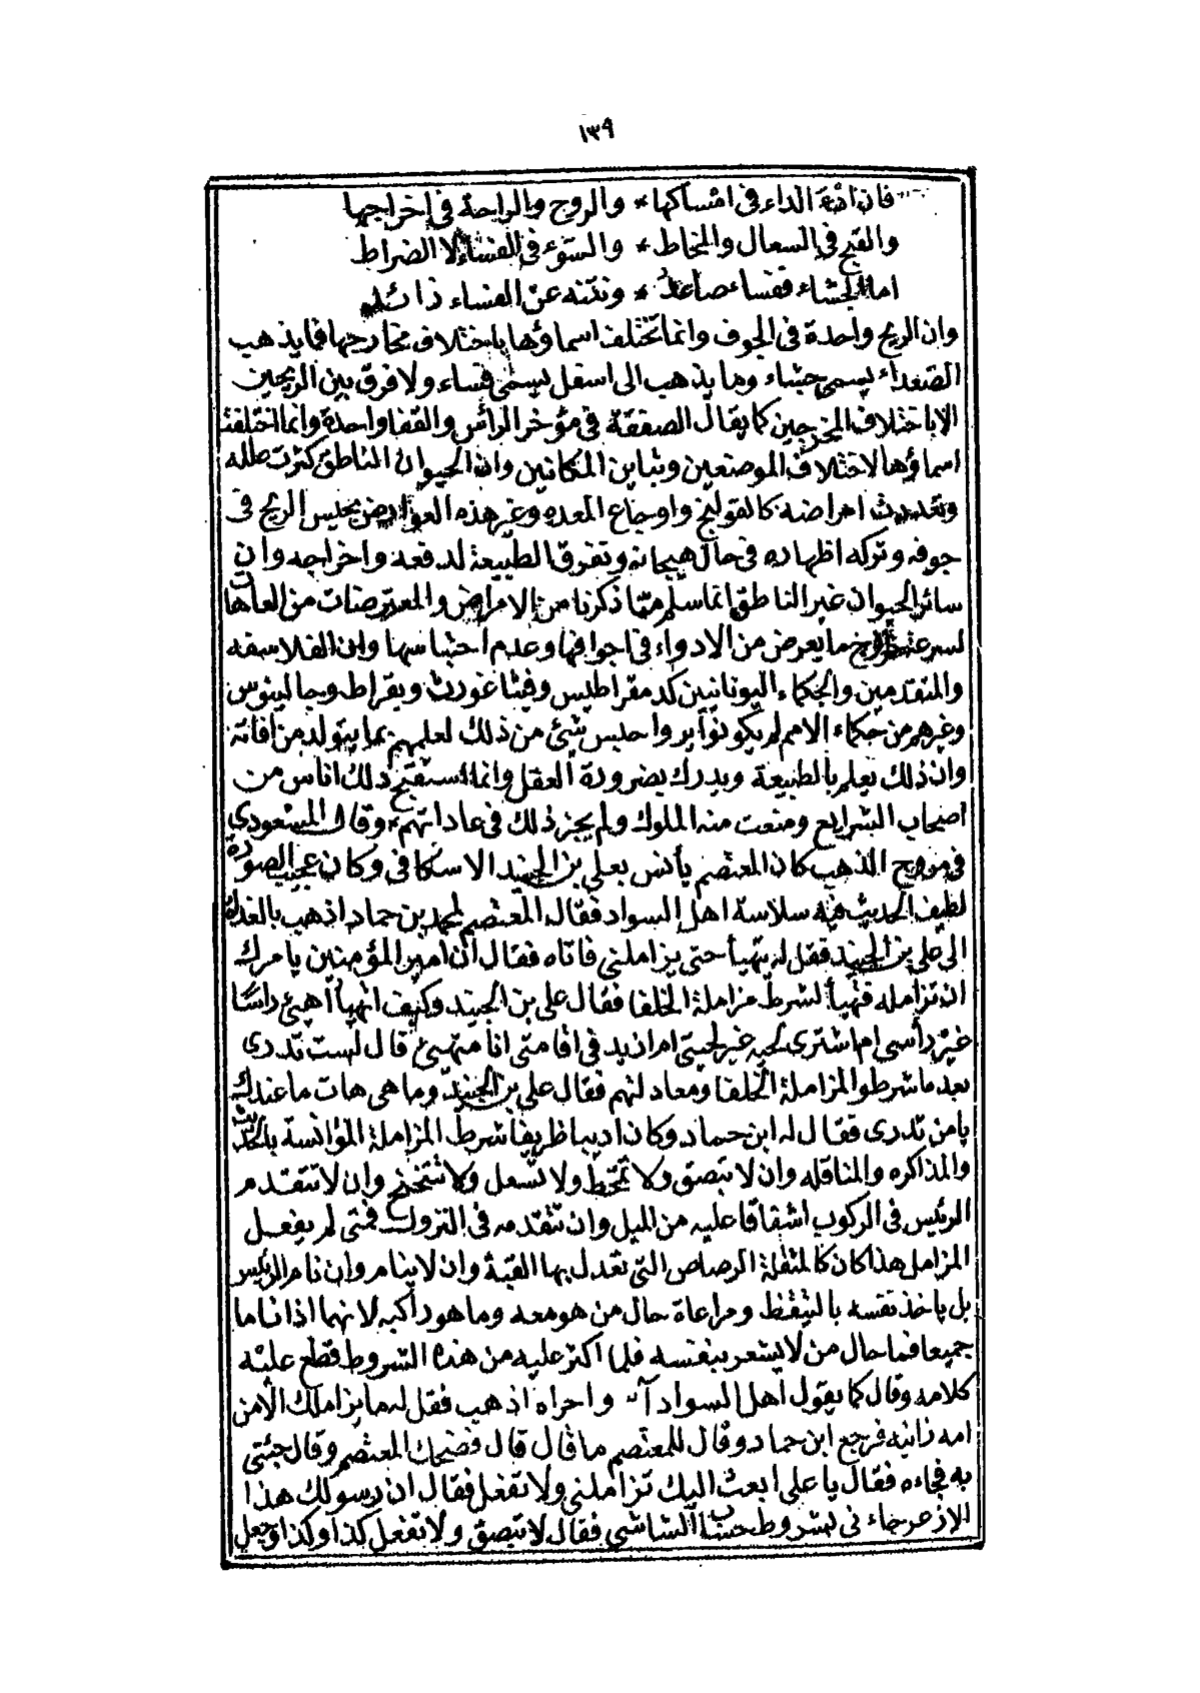 ١٣٩
فان اذية الداء فى امساكها * والروح والراحة فى اخراجها
والقبح فى السعال والمخاط * والسوء فى الفساء لا الضراط
اما الجشاء ففساء صاعد * ونتنه عن الفساء زائد
وان الريح واحدة فى الجوف وانما تختلف اسماؤها باختلاف مخارجها فما يذهب
الصعداء يسمى جشاء وما يذهب الى اسفل يسمى فساء ولا فرق بين الريحين
الا باختلاف المخرجين كما يقال الصفقة فى مؤخر الرأس والقفا واحدة وانما اختلفت
اسماؤها لاختلاف الموضعين وتباين المكانين وان الحيوان الناطق كثرت علله
وتعددت امراضه كالقولنج واوجاع المعده وغير هذه العوارض بحبس الريح فى
جوفه وتركه اظهاره فى حال هيجانه وتفرق الطبيعة لدفعه واخراجه وان
سائر الحيوان غير الناطق انما سلم مما ذكرنا من الامراض والمعترضات من العاهات
لسرعة خروج ما يعرض من الادواء فى اجوافها وعدم احتباسها وان الفلاسفه
والمتقدمين والحكماء اليونانيين كدمقراطيس وفيثاغورث وبقراط وجالينوس
وغيرهم من حكماء الامم لم يكونوا يروا حبس شئ من ذلك لعلمهم بما يتولد من آفاته
وان ذلك يعلم بالطبيعة ويدرك بضرورة العقل وانما استقبح ذلك اناس من
اصحاب الشرايع ومنعت منه الملوك ولم يجز ذلك فى عاداتهم * وقال المسعودي
فى مروج الذهب كان المعتصم يأنس بعلى بن الجنيد الاسكافى وكان عجيب الصورة
لطيف الحديث فيه سلاسة اهل السواد فقال المعتصم لمحمد بن حماد اذهب بالغداة
الى على بن الجنيد فقل له يتهيأ حتى يزاملنى فاتاه فقال ان امير المؤمنين يامرك
ان تزامله فتهيأ لشرط مزاملة الخلفا فقال على بن الجنيد وكيف اتهيأ أهيئ رأسا
غير رأسى ام اشترى لحيه غير لحيتى ام ازيد فى انا متهيئ قال لست تدرى
بعد ما شرطوا لمزاملة الخلفا ومعادلتهم فقال على بن الجنيد وما هى هات ما عندك
يا من تدرى فقال له ابن حماد وكان اديبا ظريفا شرط المزاملة المؤانسة بالحديث
والمذاكره والمناقله وان لا تبصق ولا تمخط ولا تسعل ولا تتنحنح وان لا تتقدم
الرئيس فى الركوب اشفاقا عليه من الميل وان تتقدمه فى النزول فمتى لم يفعل
المزامل هذا كان كالمثقلة الرصاص التى تعدل بها القبة وان لا ينام وان نام الرئيس
بل ياخذ نفسه بالتيقظ ومراعاة حال من هو معه وما هو راكبه لانهما اذا ناما
جميعا فما حال من لا يشعر بنفسه فلما اكثر عليه من هذه الشروط قطع عليه
كلامه وقال كما يقول اهل السواد آه واحراه اذهب فقل له ما يزاملك الا من
امه زانيه فرجع ابن حماد وقال للمعتصم ما قال قال فضحك المعتصم وقال جئنى
به فجاءه فقال يا على ابعث اليك تزاملنى ولا تفعل فقال ان رسولك هذا
الازعر جاءنى بشروط الشاشى فقال لا تبصق ولا تفعل كذا وكذا وجعل